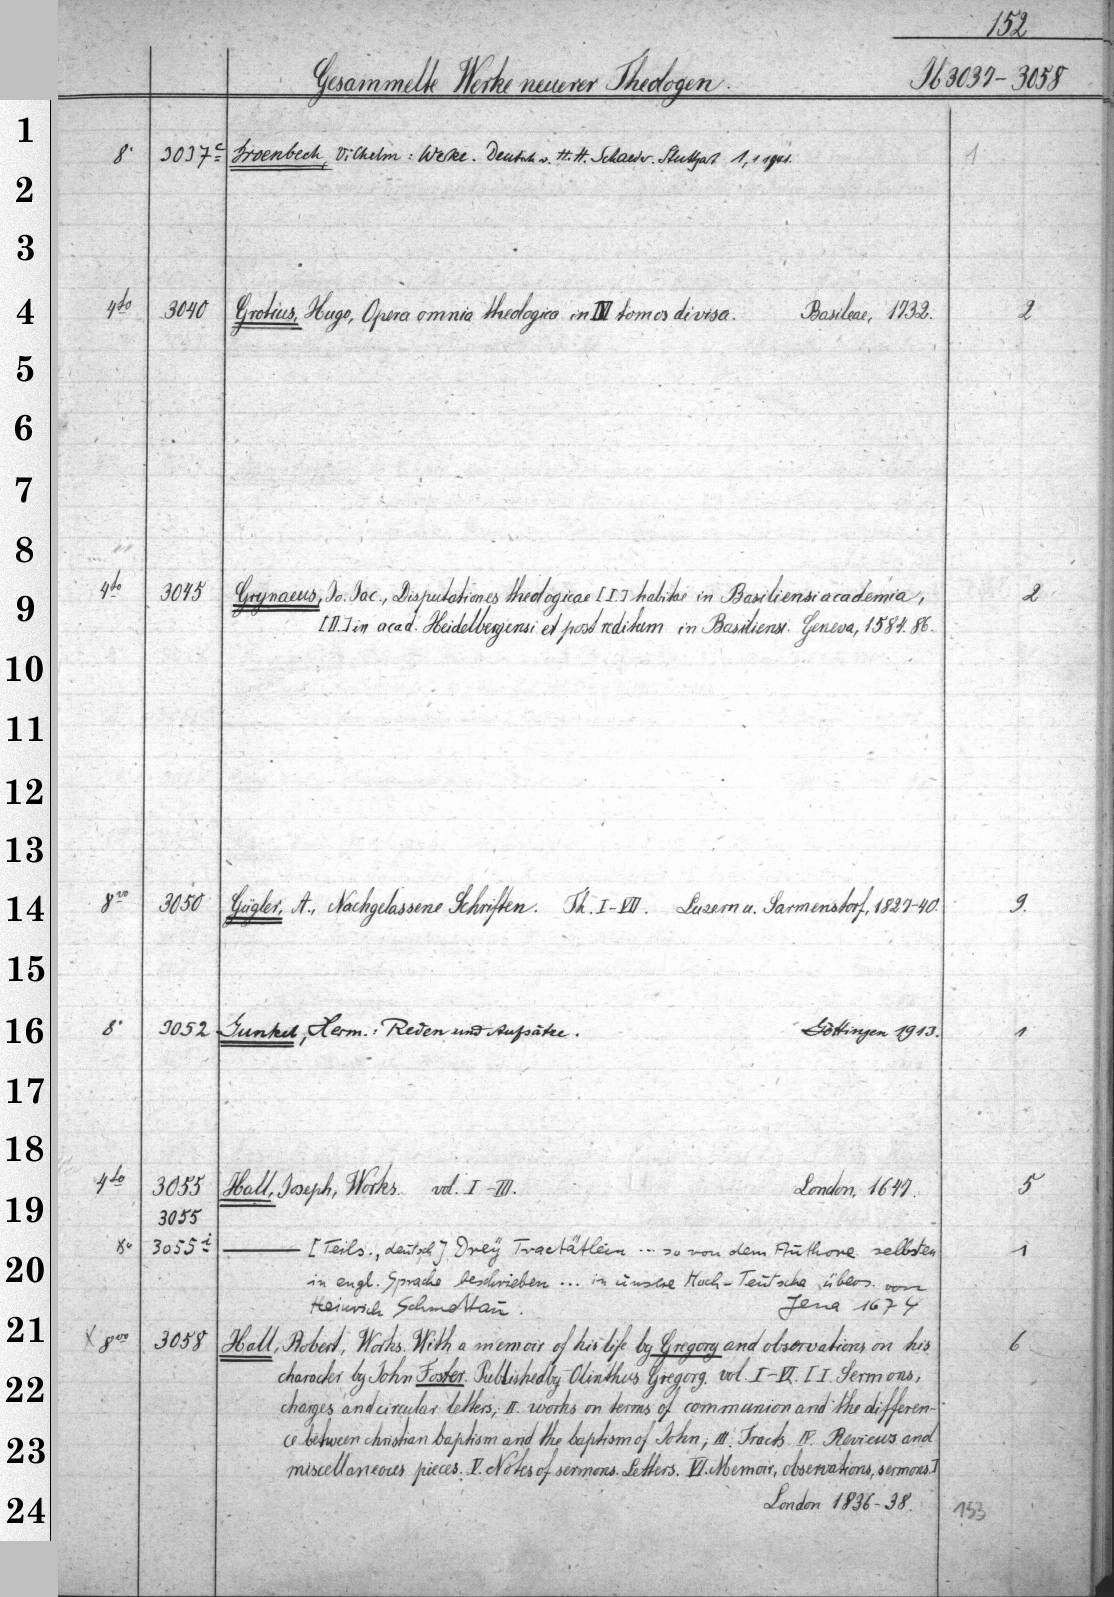 152
Gesammelte Werke neuerer Theologen. № 3037-3058
1
8° 3037c Groenbech, Vilhelm: Werke. Deutsch v. H. H. Schaeder. Stuttgart 1, 1941. 1
2
3
4 4to 3040 Grotius, Hugo, Opera omnia theologica in IV tomos divisa. Basileae, 1732. 2
5
6
7
8
9 4to 3045 Grynaeus, Jo. Jac., Disputationes theologicae [I.] habitae in Basiliensi academia, 2
[II.] in acad. Heidelbergensi et post reditum in Basiliensi. Geneva, 1584. 86.
10
11
12
13
14 8vo 3050 Gügler, A., Nachgelassene Schriften. Th. I-VII. Luzern u. Sarmenstorf, 1827-40. 9.
15
16 8° 3052 Gunkel, Herm.: Reden und Aufsätze. Göttingen 1913. 1
17
18
4to 3055 Hall, Joseph, Works. vol. I-III. London, 1647. 5
19 3055
8° 3055i — [Teils., deutsch] Dreÿ Tractätlein ... so von dem Authore selbsten 1
20 in engl. Sprache beschrieben ... in unsere Hoch-Teutsche übers. von
Heinrich Schmettau. Jena 1674
21 X 8vo 3058 Hall, Robert, Works. With a memoir of his life by Gregory and observations on his 6
22 character by John Foster. Published by Olinthus Gregory. vol. I-VI. [I. Sermons,
charges and circular letters, II. works on terms of communion and the differen-
23 ce between christian baptism and the baptism of John, III. Tracts IV. Reviews and
miscellaneous pieces. V. Notes of sermons. Letters. VI. Memoir, observations, sermons.]
24 London 1836-38. 153